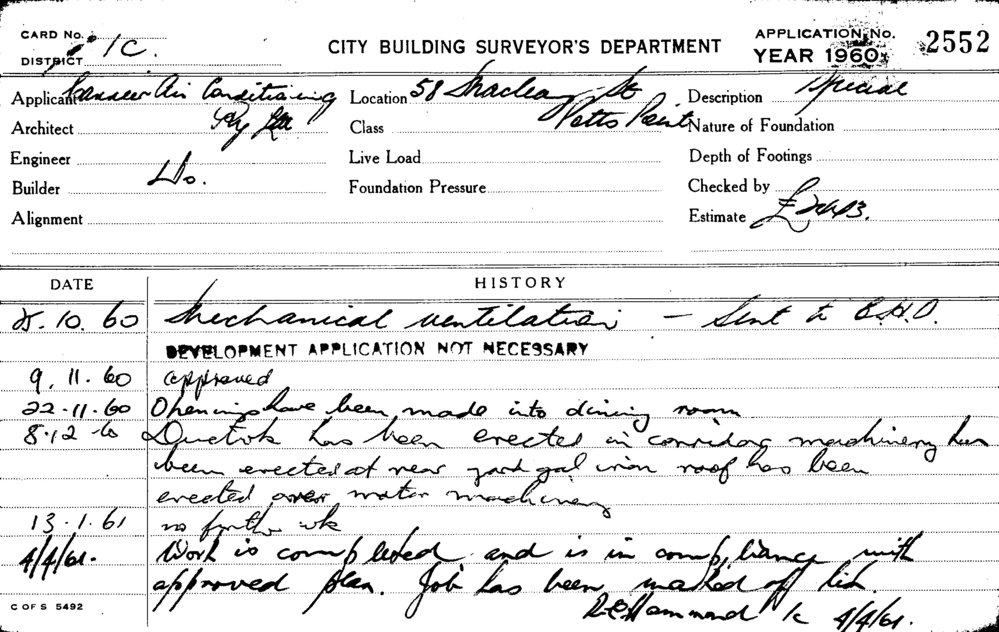 CARD No. 1C.
DISTRICT
CITY BUILDING SURVEYOR'S DEPARTMENT
APPLICATION No. 2552
YEAR 1960
Applicant Air Conditioning Pty Ltd
Location 58 Macleay St Potts Point
Description Special
Architect
Class
Nature of Foundation
Engineer
Live Load
Depth of Footings
Builder Do.
Foundation Pressure
Checked by
Alignment
Estimate
DATE HISTORY
25.10.60 Mechanical ventilation — Sent to C.H.O.
DEVELOPMENT APPLICATION NOT NECESSARY
9.11.60 approved
22.11.60 Openings have been made into dining room
8.12.60 Ductwk has been erected in corridor machinery has
been erected at rear yard gal iron roof has been
erected over motor machinery
13.1.61 no further wk
4/4/61. Work is completed and is in compliance with
approved plan. Job has been marked off list.
Hammond 1c 4/4/61.
C OF S 5492